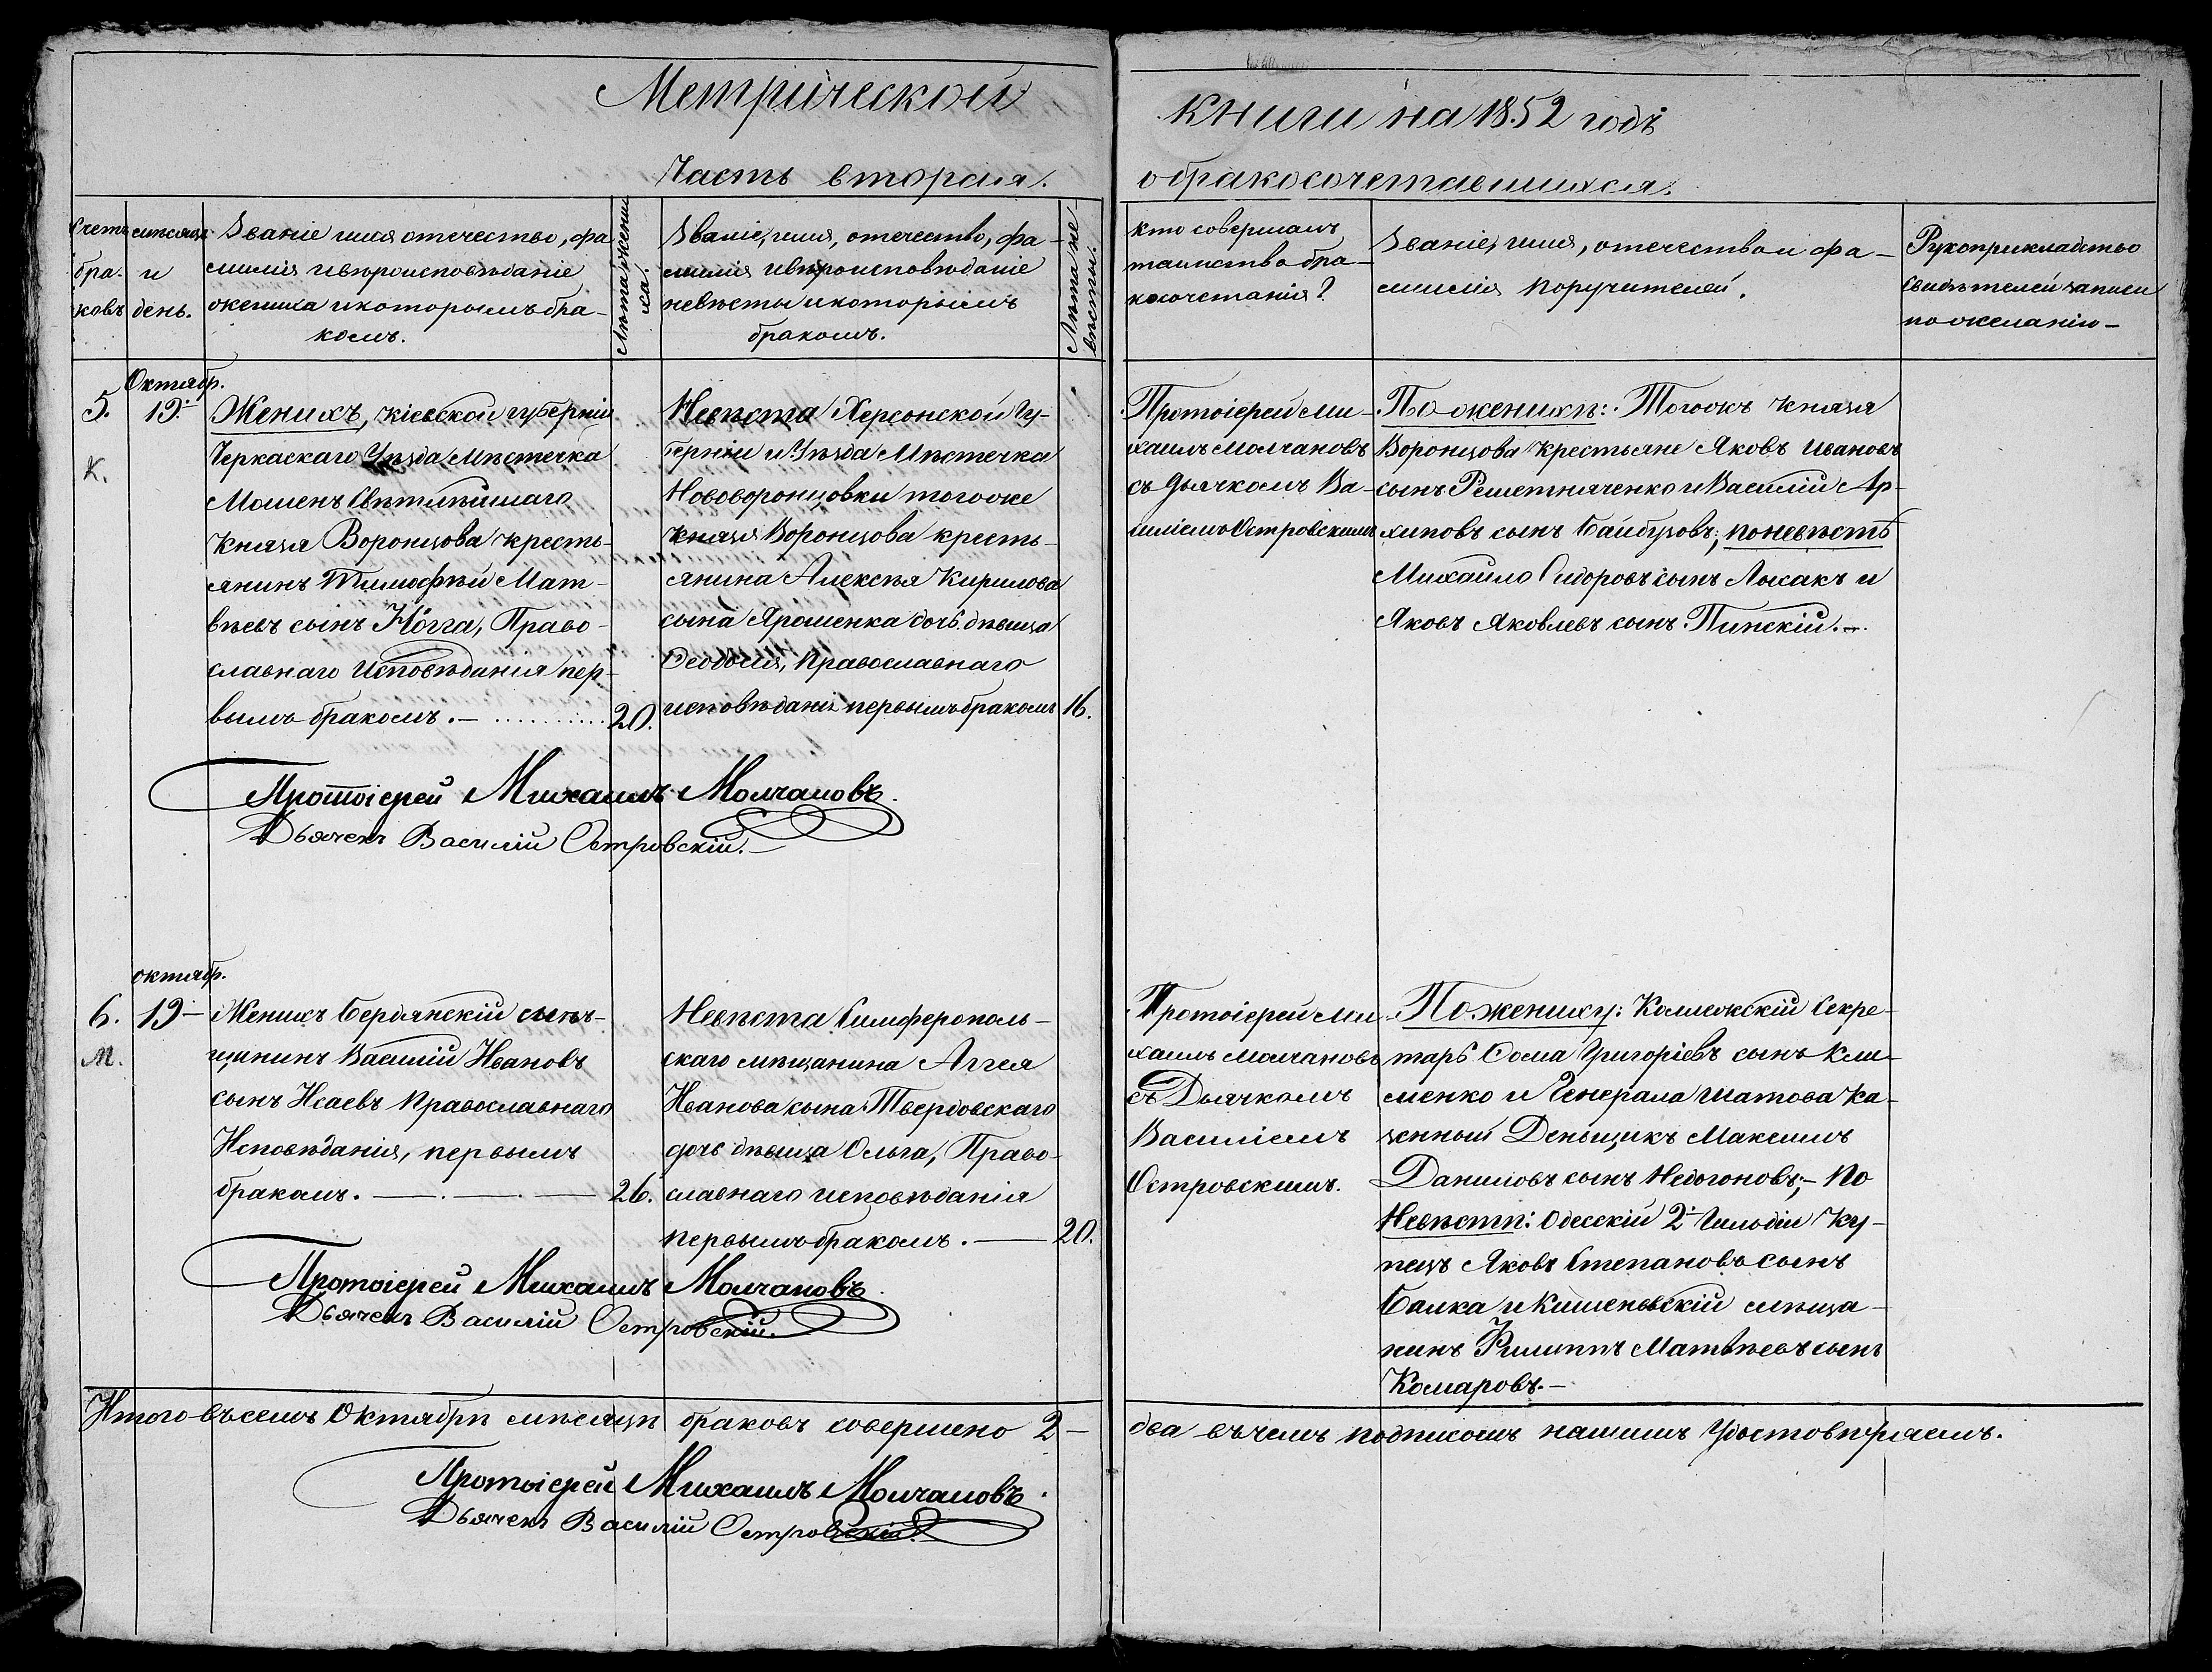 Метрической
книги на 1852 годъ
Часть вторая.
о бракосочетавшихся.
Счетъ
бра-
ковъ
мѣсяцъ
и
день.
Званіе имя отечество, фа-
милія ивѣроисповѣданіе
жениха икоторымъ бра-
комъ.
Лѣта жени-
ха.
Званіе, имя, отечество, фа-
милія ивѣроисповѣданіе
невѣсты икоторымъ
бракомъ.
Лѣта не-
вѣсты.
кто совершалъ
таинство бра-
косочетанія?
Званіе, имя, отечество и фа-
милія поручителей.
Рукоприкладство
свидѣтелей записи
по желанію-
Октябр.
5. 19.
К.
Женихъ, кіевской губерніи
Черкаскаго Уѣзда Мѣстечка
Мошенъ Свѣтлѣйшаго
Князя Воронцова кресть-
янинъ Тимофѣй Мат-
вѣевъ сынъ Ногга, Право-
славнаго Исповѣданія пер-
вымъ бракомъ.- 20.
Невѣста Херсонской Гу-
берніи и Уѣзда Мѣстечка
Нововоронцовки тогоже
Князя Воронцова кресть-
янина Алексѣя Кирилова
сына Ярошенка дочь дѣвица
Ѳеодосія, православнаго
исповѣданія первымъ бракомъ 16.
Протоіерей Ми-
хаилъ Молчановъ
съ Дьячкомъ Ва-
силіемъ Островскимъ
По женихѣ: Тогожъ Князя
Воронцова крестьяне Яковъ Ивановъ
сынъ Решетняченко и Василій Ар-
хиповъ сынъ Байбузовъ; по невѣстѣ
Михайло Сидоровъ сынъ Лысакъ и
Яковъ Яковлевъ сынъ Пинскій.-
Протоіерей Михаилъ Молчановъ.
Дьячекъ Василій Островскій.-
октябр.
6. 19-
М.
Женихъ Бердянскій мѣ-
щанинъ Василій Ивановъ
сынъ Исаевъ Православнаго
Исповѣданія, первымъ
бракомъ. 26.
Невѣста Симферополь-
скаго мѣщанина Аггея
Иванова сына Твердовскаго
дочь дѣвица Ольга, Право-
славнаго исповѣданія
первымъ бракомъ. 20.
Протоіерей Ми-
хаилъ Молчановъ
съ Дьячкомъ
Василіемъ
Островскимъ.
По жениху: Колежскій Секре-
тарь Ѳома Григоріевъ сынъ Кли-
менко и Генерала Шатова Ка-
зенный Деньщикъ Максимъ
Даниловъ сынъ Недогоновъ;- По
Невѣстѣ: Одесскій 2й Гильдіи Ку-
пецъ Яковъ Степановъ сынъ
Балка и Кишеневскій мѣща-
нинъ Филиппъ Матвѣевъ сынъ
Комаровъ.-
Протоіерей Михаилъ Молчановъ.
Дьячекъ Василій Островскій.
Итого въ семъ Октябрѣ мѣсяцѣ браковъ совершено 2- два въ чемъ подписомъ нашимъ Удостовѣряемъ.
Протоіерей Михаилъ Молчановъ.
Дьячекъ Василій Островскій.